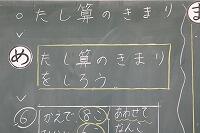 ○ たし算のきまり
ま
め
たし算のきまり
をしろう。
⑥ かえで 8こ あわせて
なんこ